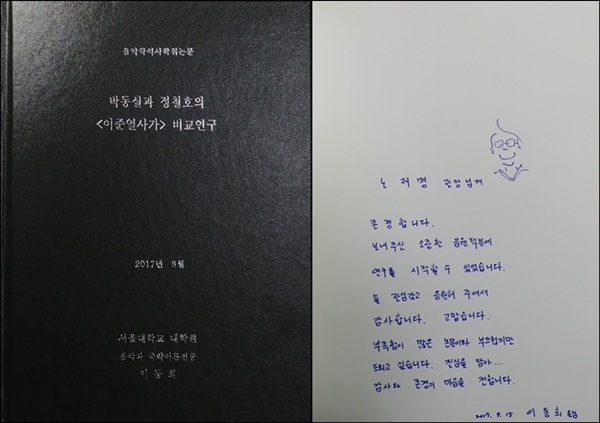 음악학석사학위논문
박동실과 정철호의
<이준열사가> 비교연구
2017년 8월
서울대학교 대학원
음악과 국악이론전공
이 동 희
노 재 명 관장님께
존경합니다.
보내주신 소중한 음원덕분에
연구를 시작할 수 있었습니다.
늘 관심갖고 응원해 주셔서
감사합니다. 고맙습니다.
부족함이 많은 논문이라 부끄럽지만
드리고 싶습니다. 진심을 담아...
감사와 존경의 마음을 전합니다.
2017. 9. 15 이 동 희 드림